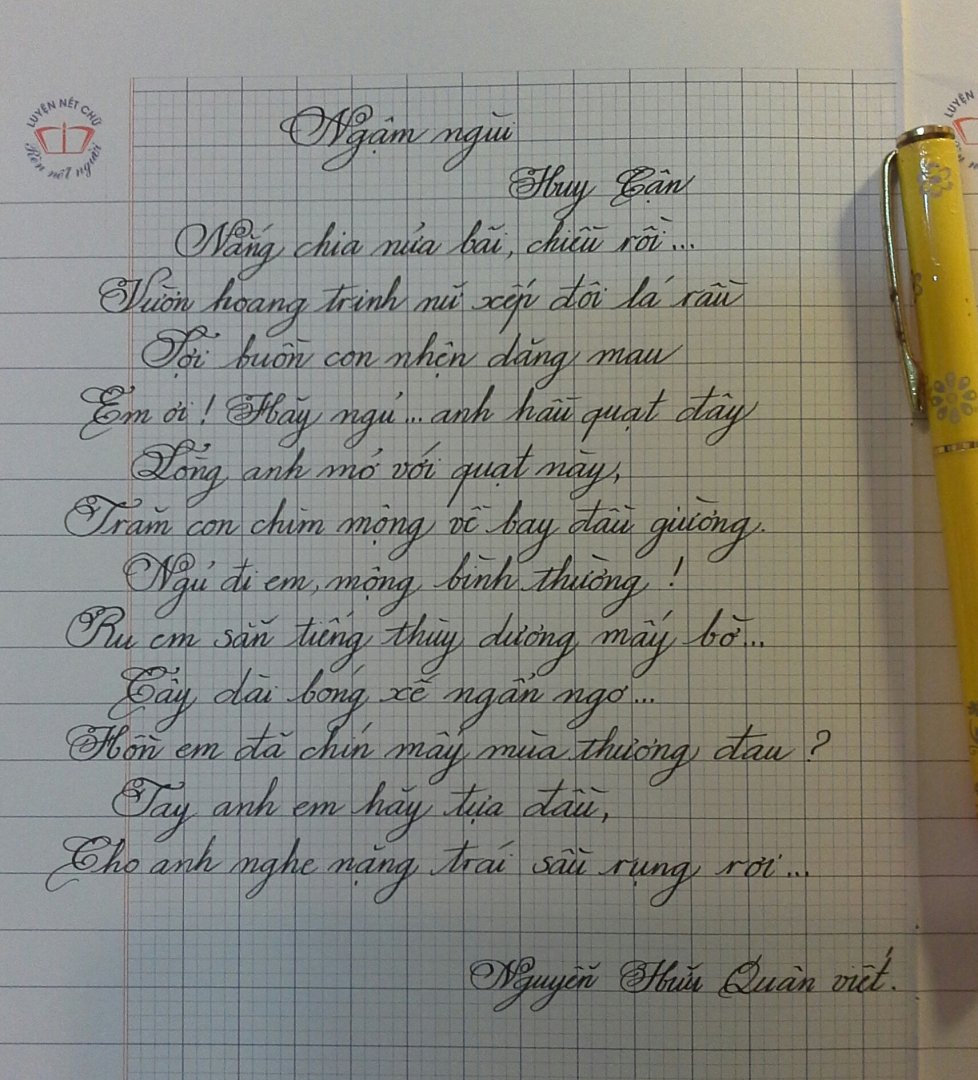 LUYỆN NÉT CHỮ
Rèn nét người
LUYỆN
Ngậm ngùi
Huy Cận
Nắng chia nửa bãi, chiều rồi...
Vườn hoang trinh nữ xếp đôi lá rầu
Sợi buồn con nhện dăng mau
Em ơi! Hãy ngủ... anh hầu quạt đây
Lòng anh mở với quạt này,
Trăm con chim mộng về bay đầu giường.
Ngủ đi em, mộng bình thường!
Ru em sẵn tiếng thùy dương mấy bờ...
Cây dài bóng xế ngẩn ngơ...
Hồn em đã chín mấy mùa thương đau?
Tay anh em hãy tựa đầu,
Cho anh nghe nặng trái sầu rụng rơi...
Nguyễn Hữu Quân viết.